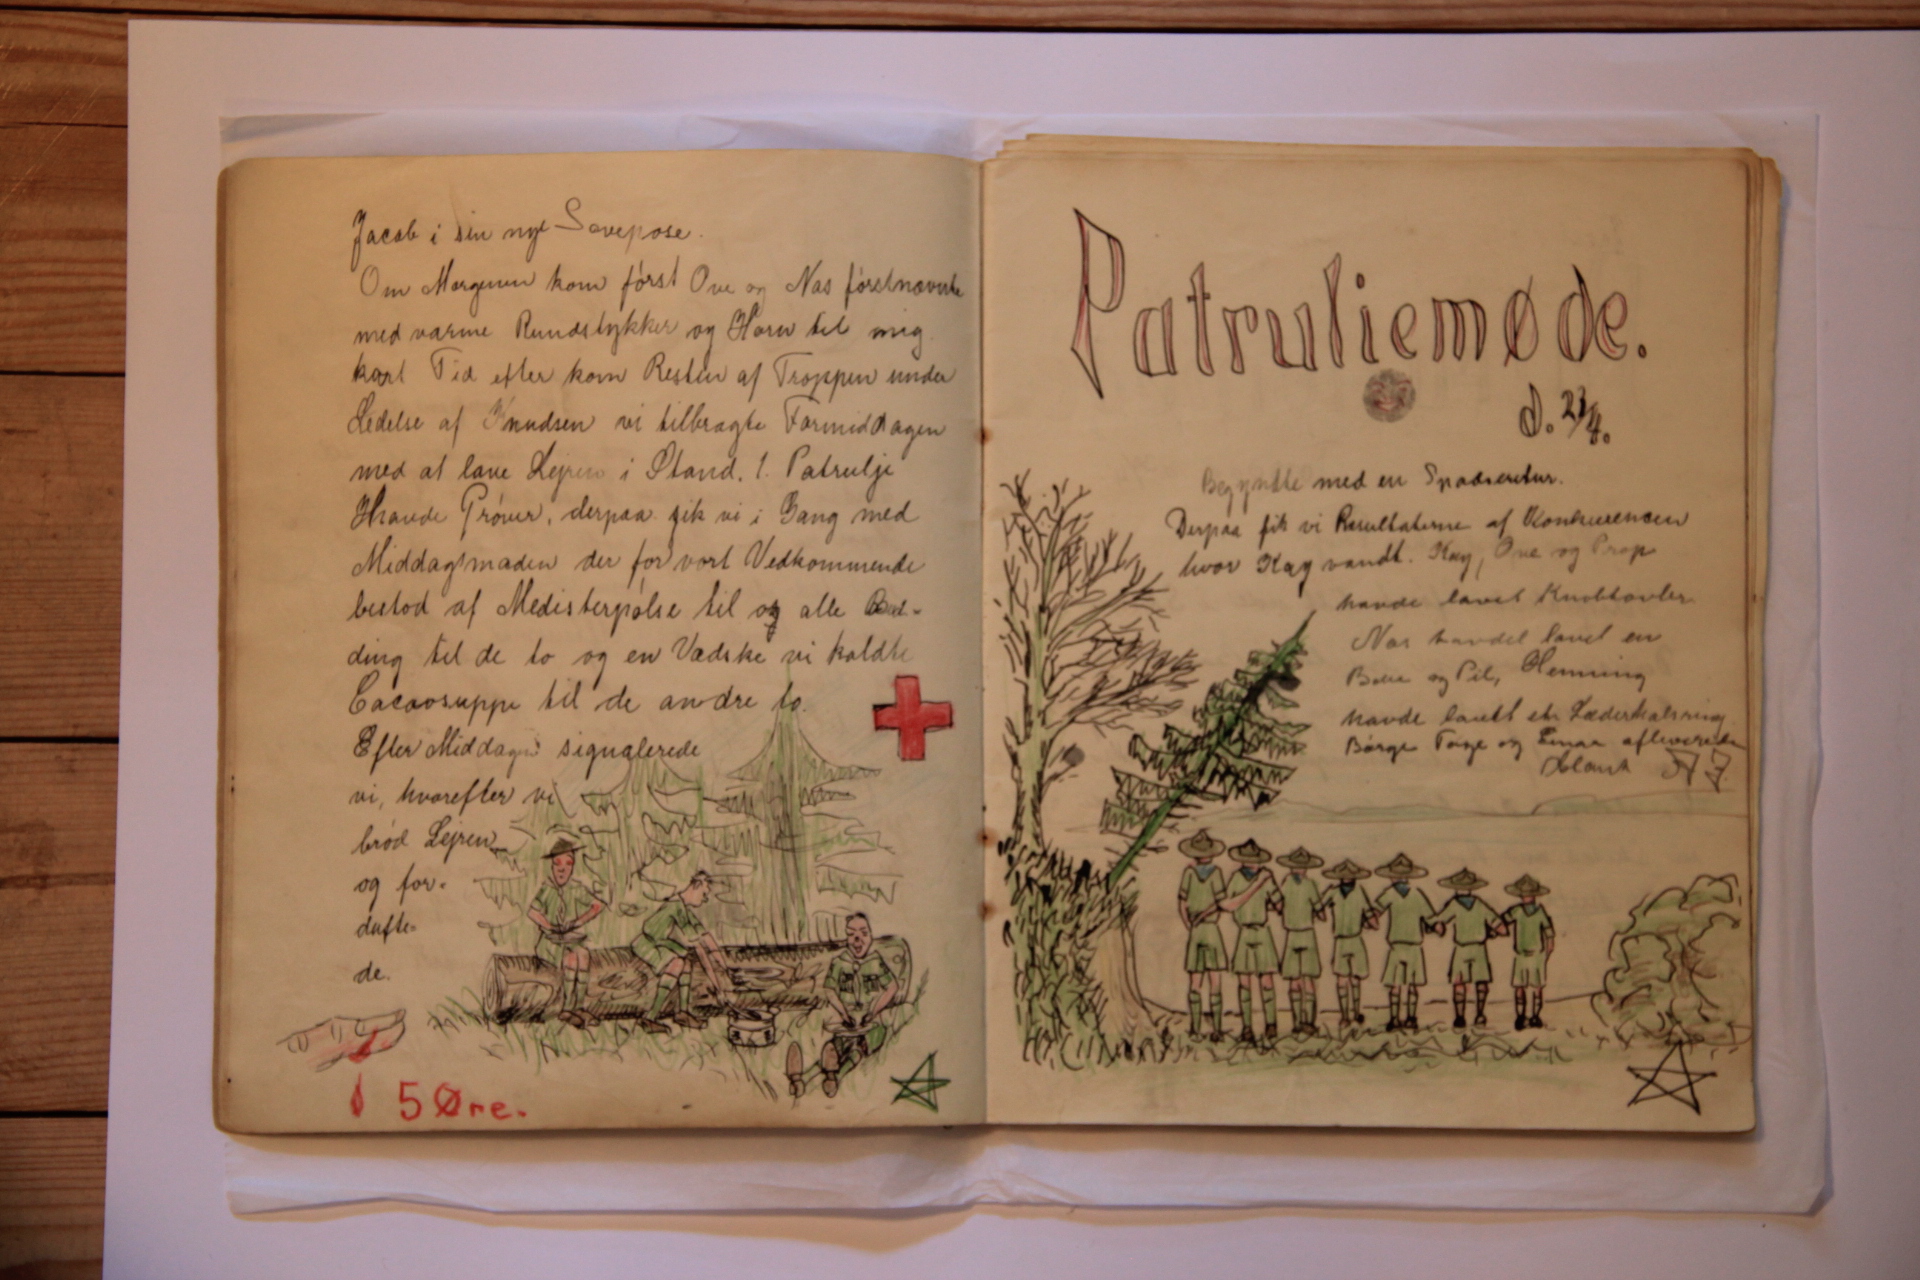 Jacob i sin nye Sovepose.
Om Morgenen kom først Ove og Nas førstnævnte
med varme Rundstykker og Horn til mig.
kort Tid efter kom Resten af Troppen under
Ledelse af Knudsen vi tilbragte Formiddagen
med at lave Lejren i Stand. 1. Patrulje
Havde Prøver, derpaa gik vi i Gang med
Middagsmaden der for vort Vedkommende
bestod af Medisterpølse til og alle Bud-
ding til de to og en Vædske vi kaldte
Cacaosuppe til de andre to.
Efter Middagen signalerede
vi, hvorefter vi
brød Lejren
og for-
dufte-
de.
5 Øre.
Patruliemøde.
d. 21/4.
Begyndte med en Spadseretur.
Derpaa fik vi Resultaterne af Konkurencen
hvor Kay vandt. Kay, Ove og Prop
havde lavet Knobtavler
Nas havde lavet en
Bue og Pil, Henning
havde lavet en Læderkalsring
Børge Tage og Einar afleverede
blank